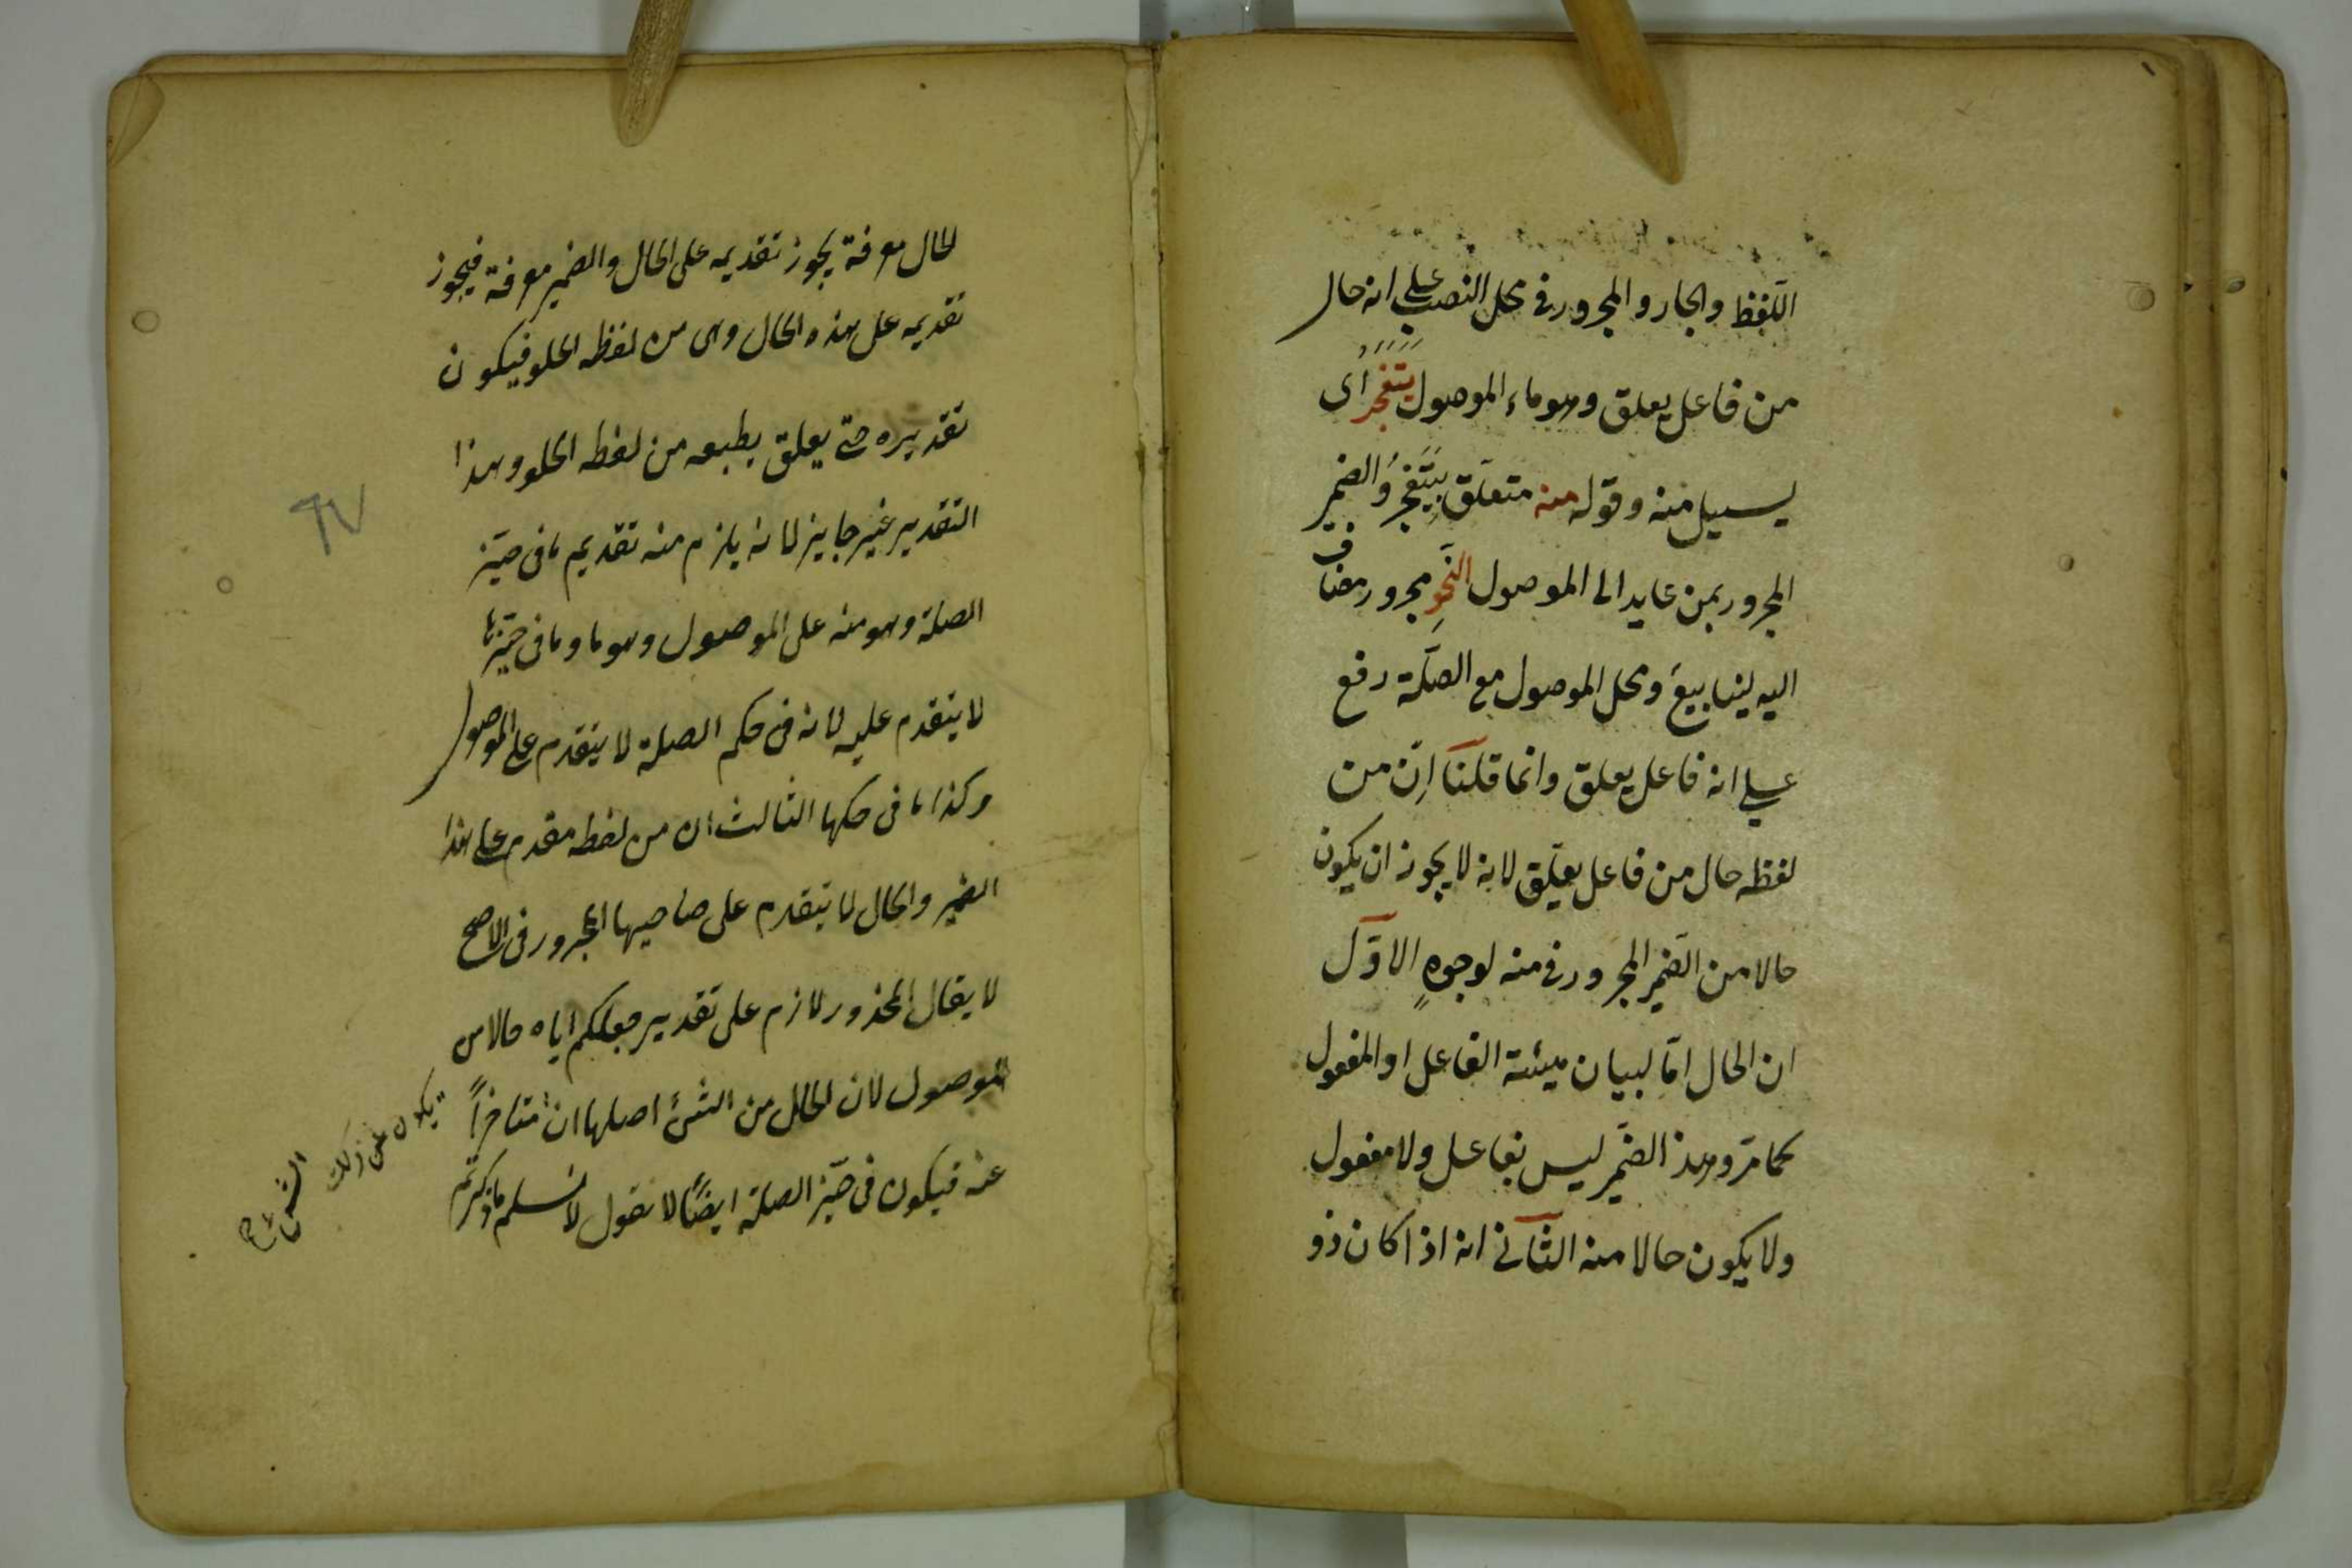 اللفظ والجار والمجرور فى محل النصب على انه حال
من فاعل يعلق وهو ماء الموصول يتفجر اى
يسيل منه وقوله منه متعلق بيتفجر والضمير
المجرور بمن عايد الى الموصول النحو مجرور مضاف
اليه لينابيع ومحل الموصول مع الصلة رفع
على انه فاعل يعلق وانما قلنا ان من
لفظه حال من فاعل يعلق لانه لا يجوز ان يكون
حالا من الضمير المجرور فى منه لوجوه الاول
ان الحال اما لبيان هيئة الفاعل او المفعول
كما مر وهذ الضمير ليس بفاعل ولا مفعول
ولا يكون حالا منه الثانى انه اذا كان ذو
لحال معرفة يجوز تقديمه على الحال والضمير معرفة فيجوز
تقديمه على هذه الحال وهى من لفظه الحلو فيكون
تقديره حتى يعلق بطبعه من لفظه الحلو وهذا
التقدير غير جايز لانه يلزم منه تقديم ما فى حيز
الصلة وهو منه على الموصول وهو ما وما فى حيزها
لا يتقدم عليه لانه فى حكم الصلة لا يتقدم على الموصول
وكذا ما فى حكمها الثالث ان من لفظه مقدم على هذا
الضمير والحال لا يتقدم على صاحبها المجرور فى الاصح
لا يقال المحذور لازم على تقدير جعلكم اياه حالا من
الموصول لان الحال من الشئ اصلها ان متاخراً
عنه فيكون فى حيز الصلة ايضاً لا نقول لا نسلم ما ذكرتم
يكون من ذلك
٦٧